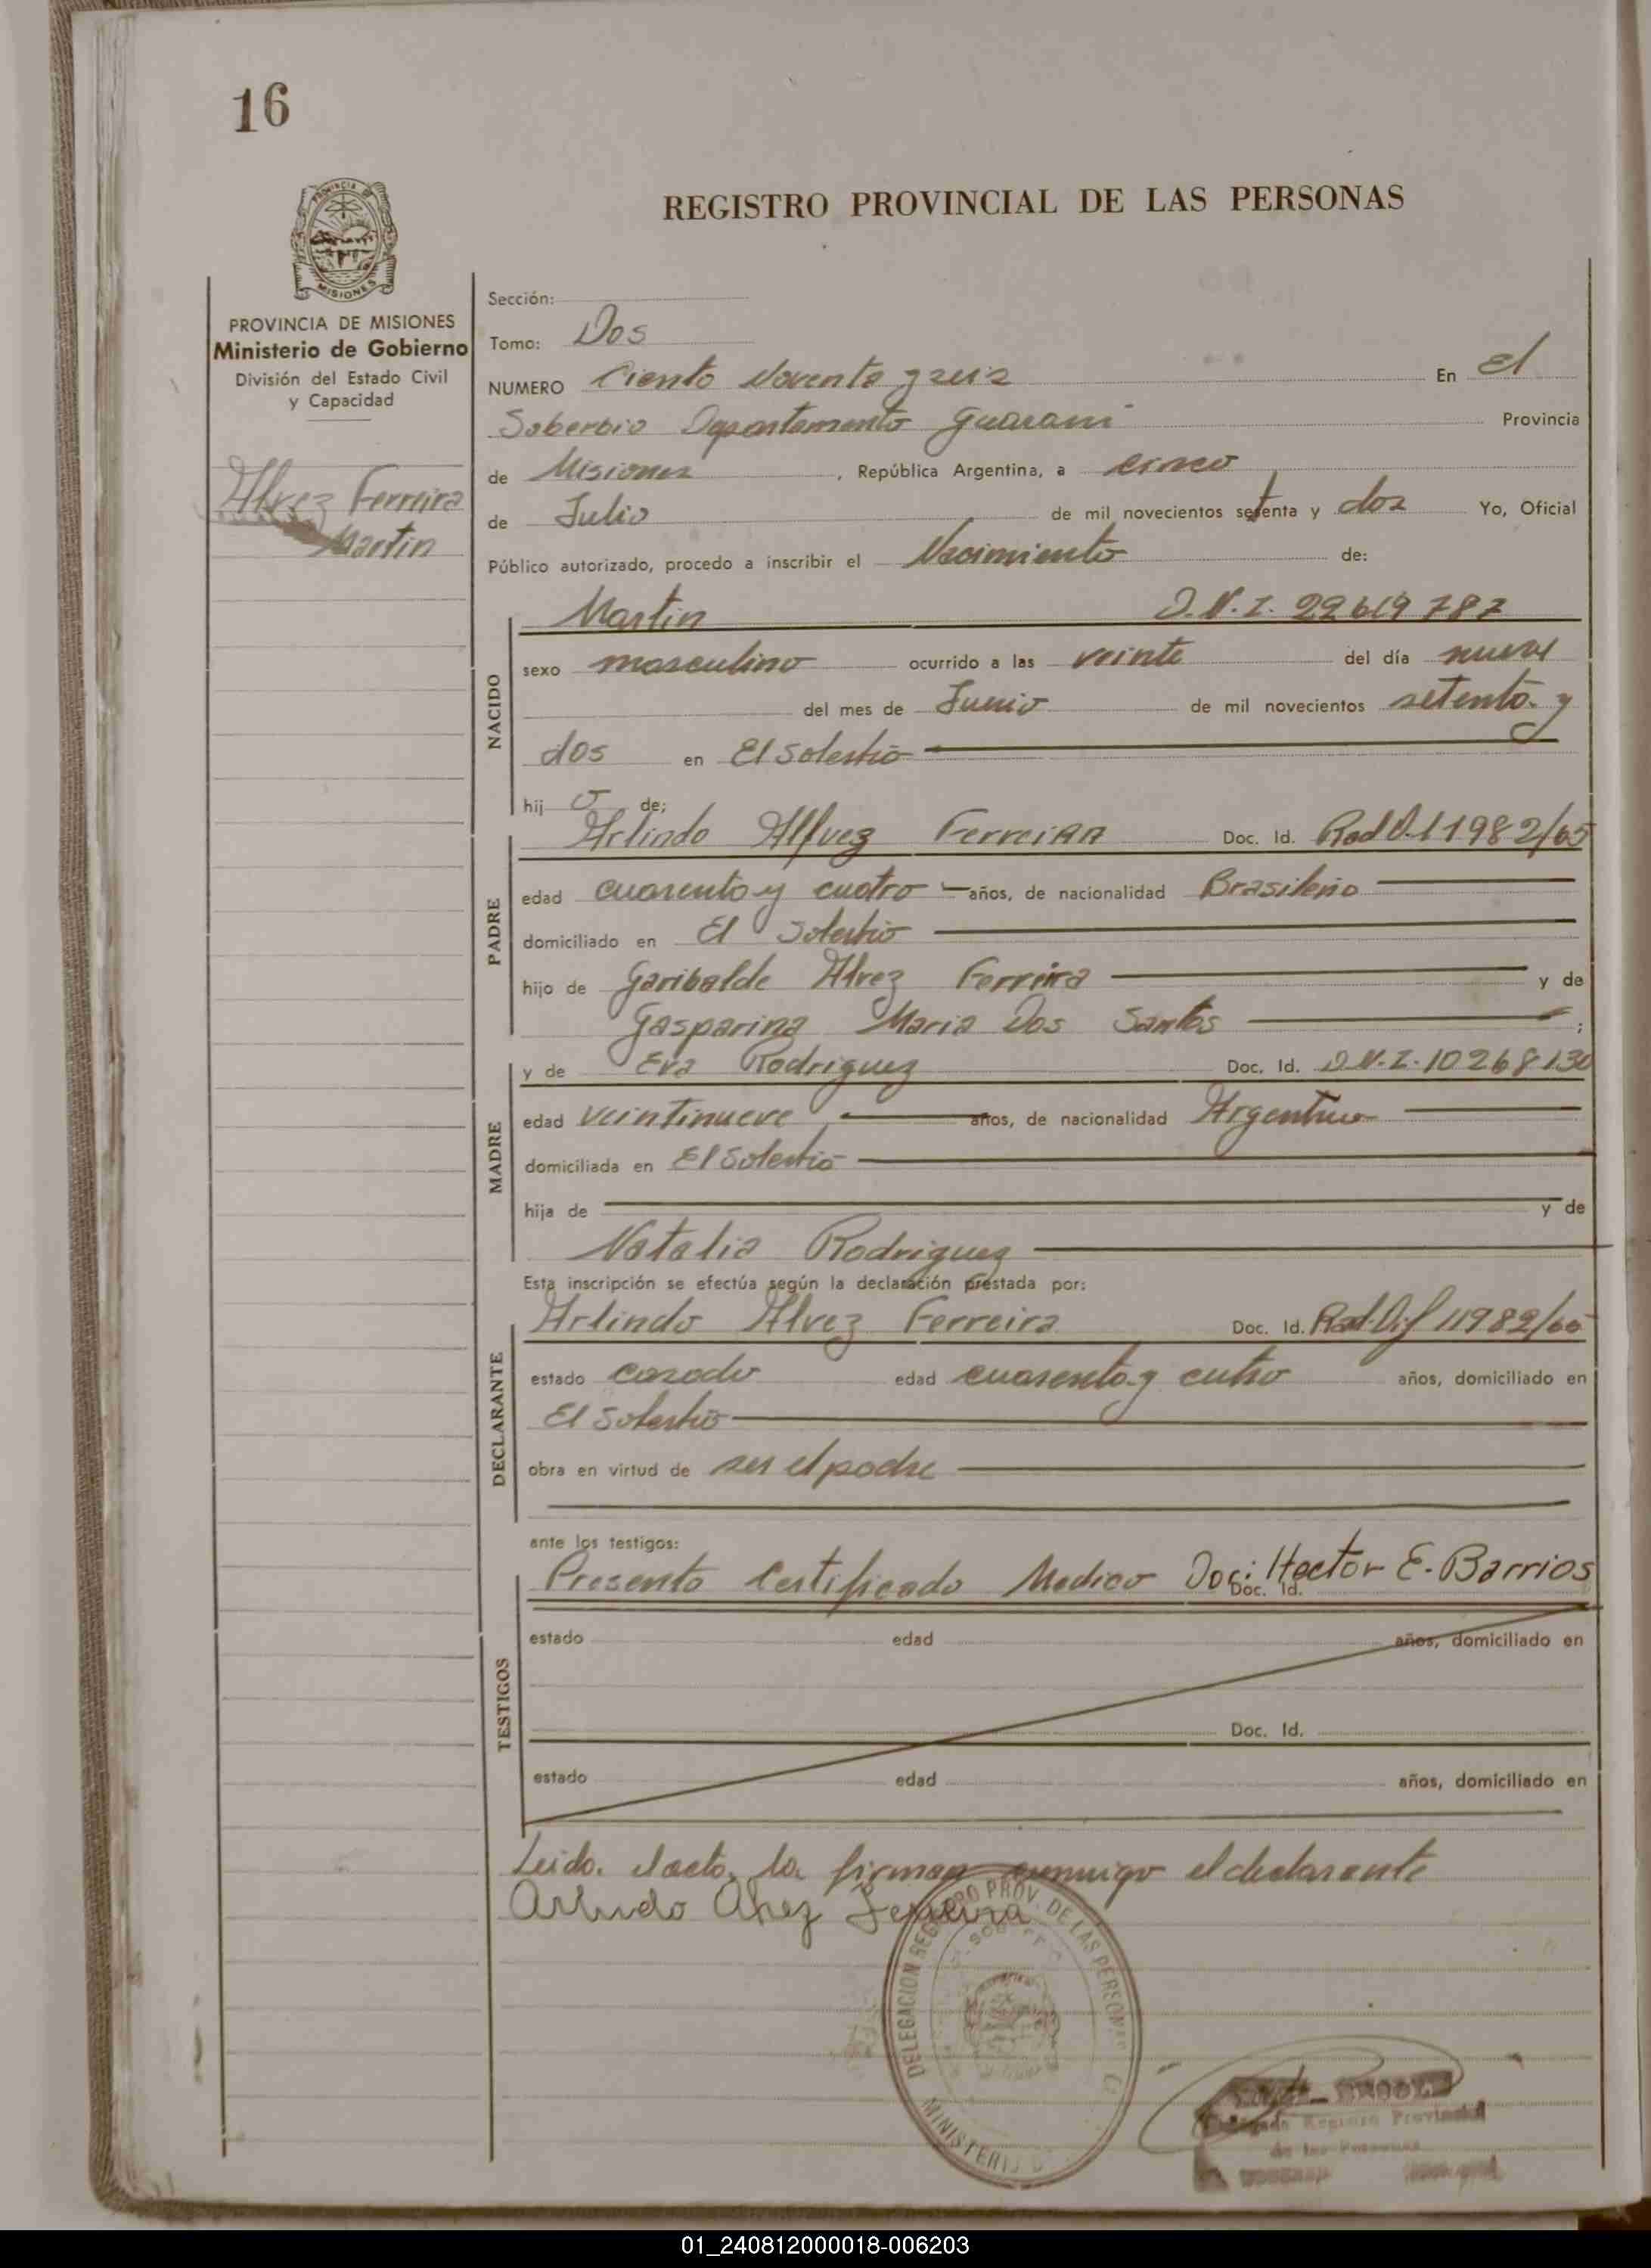 16
PROVINCIA DE MISIONES
REGISTRO PROVINCIAL DE LAS PERSONAS
PROVINCIA DE MISIONES
Ministerio de Gobierno
División del Estado Civil
y Capacidad
Alvez Ferreira
Martin
Sección:
Tomo: Dos
NUMERO Ciento Noventa y seis En El
Soberbio Departamento Guarani Provincia
de Misiones, República Argentina, a cinco
de Julio de mil novecientos setenta y dos Yo, Oficial
Público autorizado, procedo a inscribir el Nacimiento de:
NACIDO
Martin D.N.I. 22619787
sexo masculino ocurrido a las veinte del día nueve
del mes de Junio de mil novecientos setenta y
dos en El Solestio
hij o de;
PADRE
Arlindo Alfvez FerreiRA Doc. Id. 11982/65
edad cuarenta y cuatro años, de nacionalidad Brasileño
domiciliado en El Solestio
hijo de Garibalde Alvez Ferreira y de
Gasparina Maria Dos Santos ;
MADRE
y de Eva Rodriguez Doc. Id. D.N.I. 10268130
edad veintinueve años, de nacionalidad Argentina
domiciliada en El Solestio
hija de y de
Natalia Rodriguez
Esta inscripción se efectúa según la declaración prestada por:
DECLARANTE
Arlindo Alvez Ferreira Doc. Id. 11982/65
estado casado edad cuarenta y cutro años, domiciliado en
El Solestio
obra en virtud de ser el padre
ante los testigos:
TESTIGOS
Presento Certificado Medico Doc: Hector E. Barrios
Doc. Id.
estado edad años, domiciliado en
Doc. Id.
estado edad años, domiciliado en
Leida el acta, la firman conmigo el declarante
Arlindo Alvez Ferreira
DELEGACION REGISTRO PROV. DE LAS PERSONAS
Registro Provincial
de las Personas
01_240812000018-006203